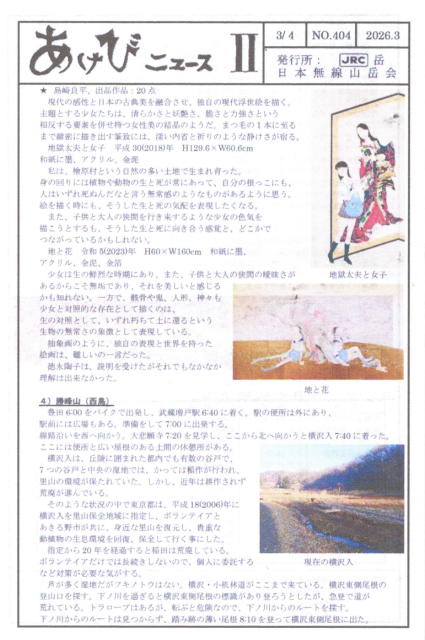 あけびニュース Ⅱ
3/4 NO.404 2026.3
発行所: JRC 岳
日本無線山岳会
★ 島崎良平、出品作品:20点
現代の感性と日本の古典美を融合させ、独自の現代浮世絵を描く。
主題とする少女たちは、清らかさと妖艶さ、脆さと力強さという
相反する要素を併せ持つ女性美の結晶のようだ。まつ毛の1本に至る
まで緻密に描き出す筆致には、深い内省と祈りのような静けさが宿る。
地獄太夫と女子 平成30(2018)年 H129.6×W60.6cm
和紙に墨、アクリル、金泥
私は、檜原村という自然の多い土地で生まれ育った。
身の回りには植物や動物の生と死が常にあって、自分の根っこにも、
人はいずれ死ぬんだなと言う無常感のようなものがあるように思う。
絵を描く時にも、そうした生と死の気配を表現したくなる。
また、子供と大人の狭間を行き来するような少女の色気を
描こうとするも、そうした生と死に向き合う感覚と、どこかで
つながっているかもしれない。
地と花 令和5(2023)年 H60×W160cm 和紙に墨、
アクリル、金泥、金箔
少女は生の鮮烈な時期にあり、また、子供と大人の狭間の曖昧さが
あるからこそ無垢であり、それを美しいと感じる
かも知れない。一方で、骸骨や鬼、人形、神々も
少女と対照的な存在として描くのは、
生の対照として、いずれ朽ちて土に還るという
生物の無常さの象徴として表現している。
抽象画のように、独自の表現と世界を持った
絵画は、難しいの一言だった。
徳永陶子は、説明を受けたがそれでもなかなか
理解は出来なかった。
地獄太夫と女子
地と花
4)勝峰山(西島)
豊田6:00をバイクで出発し、武蔵増戸駅6:40に着く。駅の便所は外にあり、
駅前には広場もある。準備をして7:00に出発する。
線路沿いを西へ向かう。大悲願寺7:20を見学し、ここから北へ向かうと横沢入7:40に着った。
ここには便所と広い屋根のある土間の休憩所がある。
横沢入は、丘陵に囲まれた都内でも有数の谷戸で、
7つの谷戸と中央の湿地では、かつては稲作が行われ、
里山の環境が保たれていた。しかし、近年は耕作されず
荒廃が進んでいる。
そのような状況の中で東京都は、平成18(2006)年に
横沢入を里山保全地域に指定し、ボランティアと
あきる野市が共に、身近な里山を復元し、貴重な
動植物の生息環境を回復、保全して行く事にした。
指定から20年を経過すると稲田は荒廃している。
ボランティアだけでは長続きしないので、個人に委託する
など対策が必要な気がする。
現在の横沢入
芦が多く湿地だがフキノトウはない。横沢・小机林道がここまで来ている。横沢東側尾根の
登山口を探す。下ノ川を過ぎると横沢東側尾根の標識があり登ろうとしたが、急登で道が
荒れている。トラロープはあるが、転ぶと危険なので、下ノ川からのルートを探す。
下ノ川からのルートは見つからず、踏み跡の薄い尾根8:10を登って横沢東側尾根に出た。